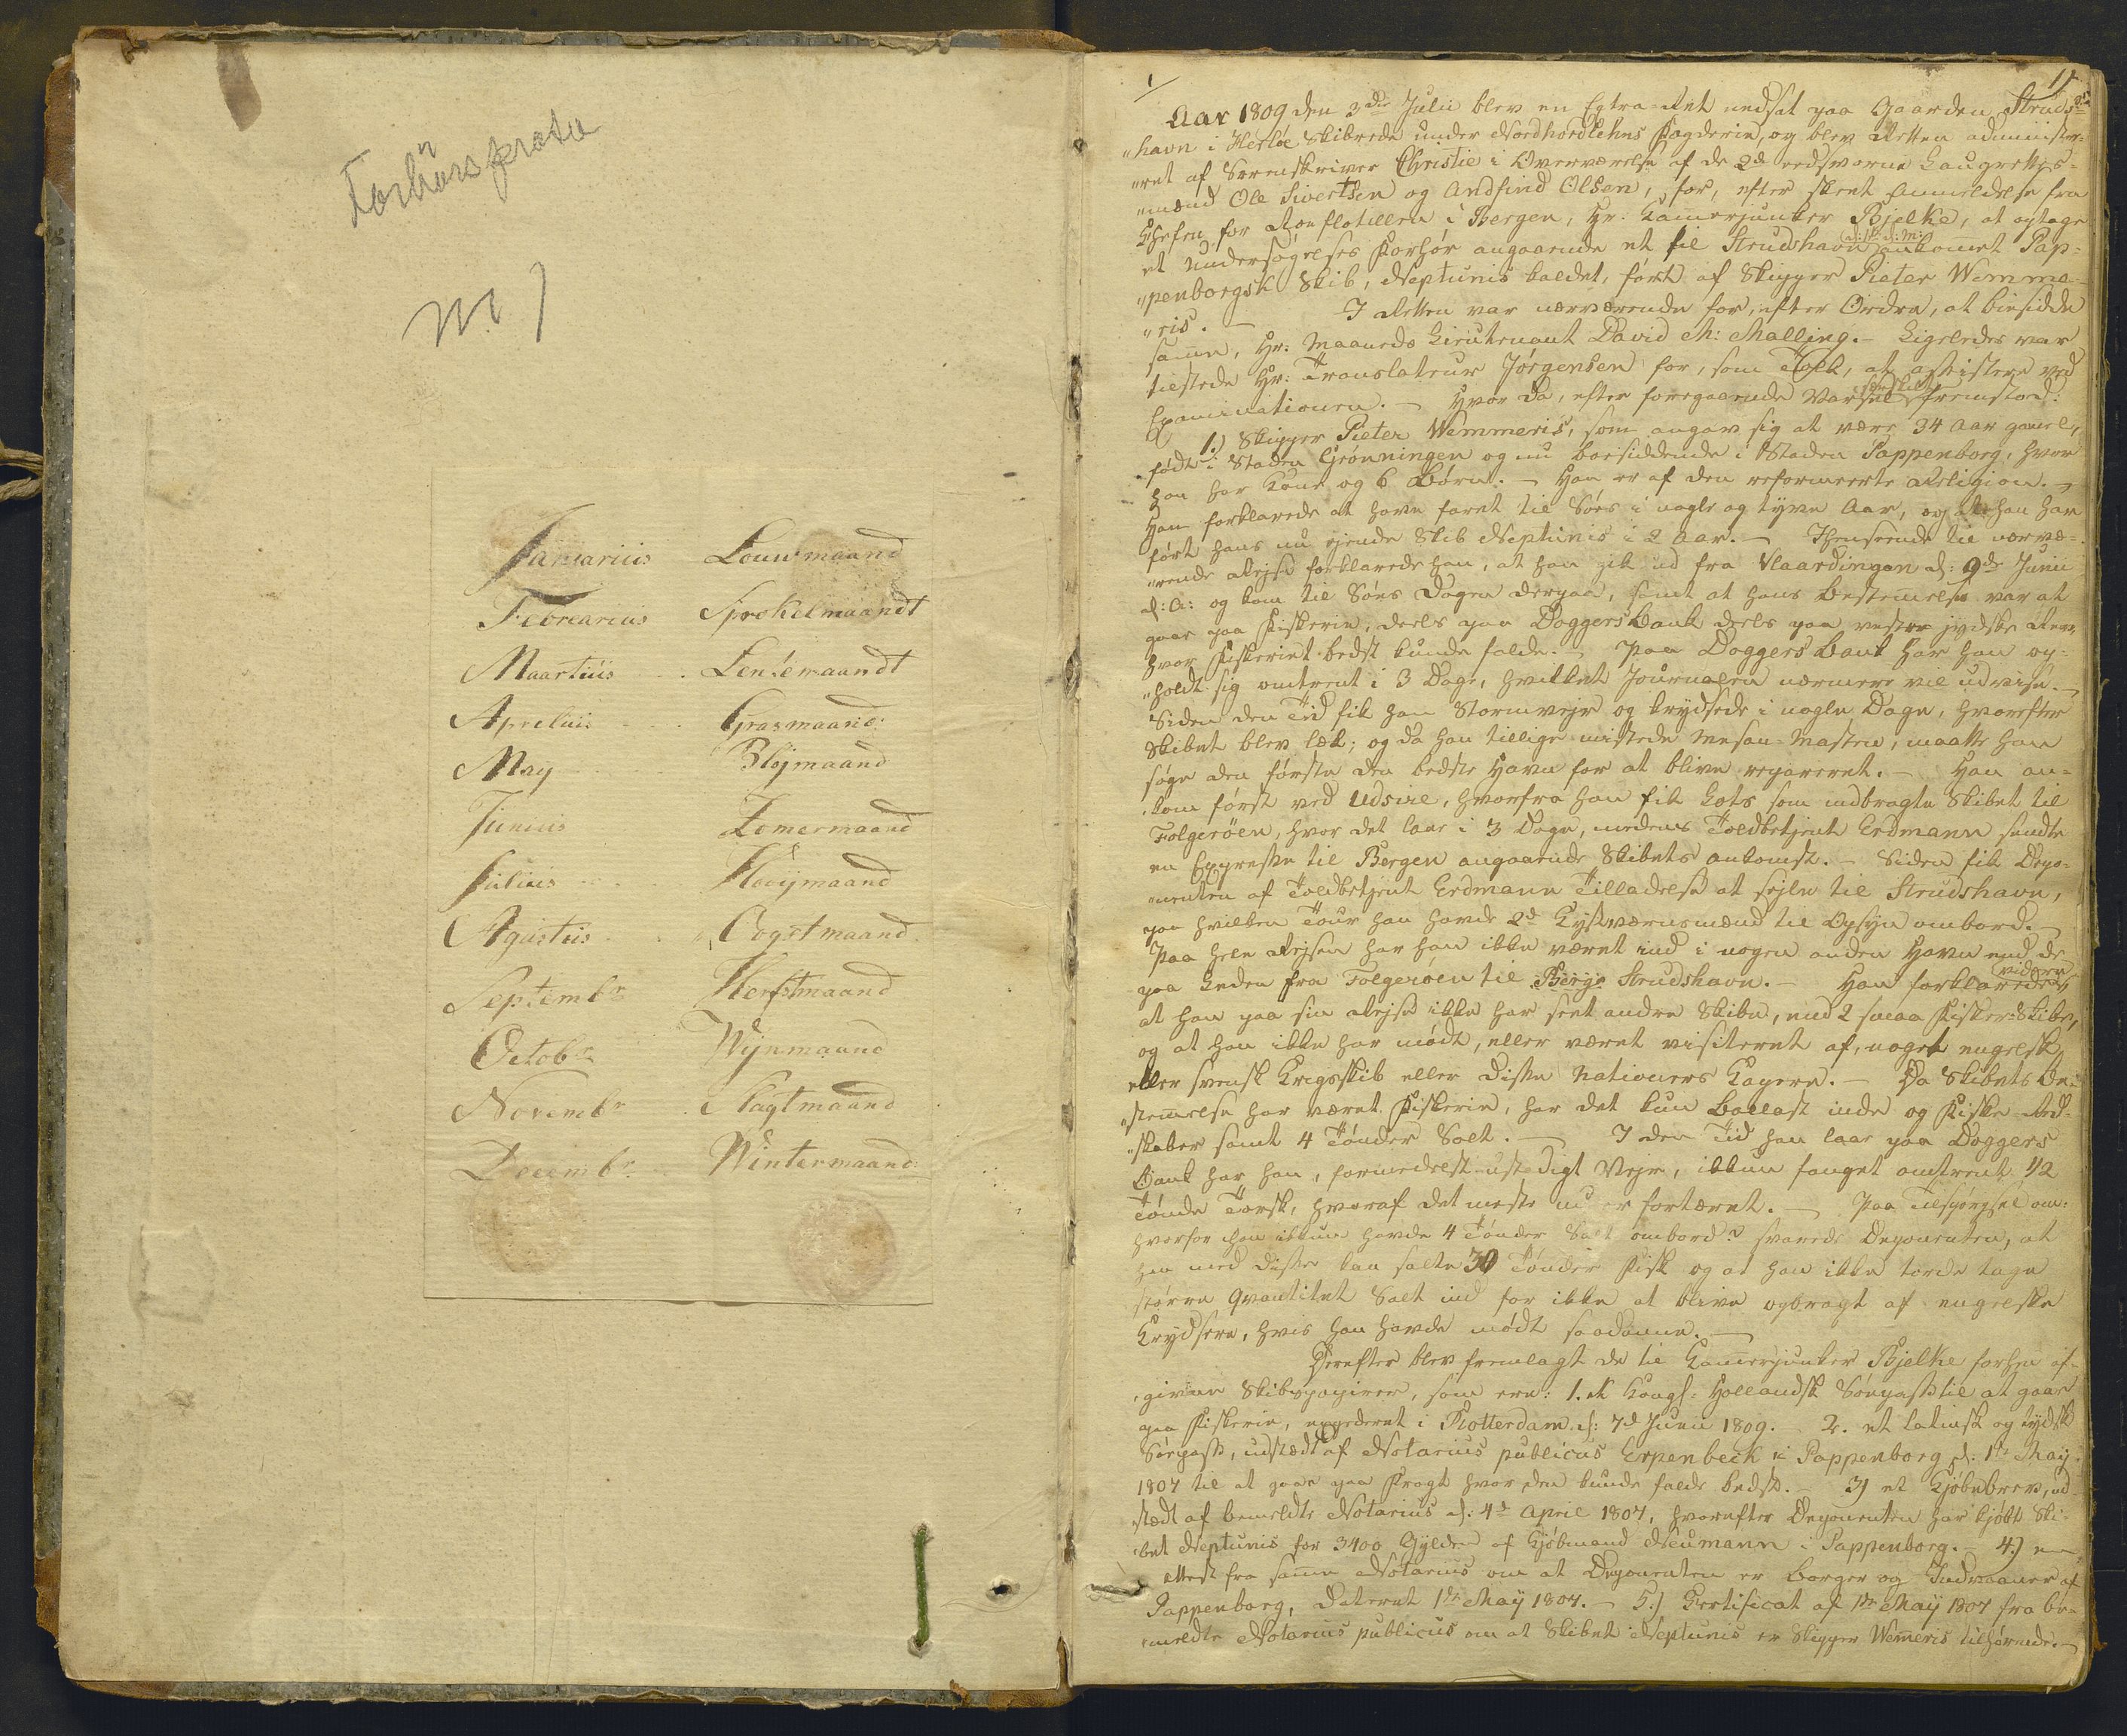 Forhørsprotu
No 1
Januarius Louwmaand
Februarius Sprokelmaandt
Maartius Lentemaandt
Aprelius Grasmaand:
May Bloÿmaand
Junius Zomermaand
Julius Hooÿmaand
Agustus Oogstmaand
Septembr Herfstmaand
Octobr Wÿnmaand
Novembr Slagtmaand
Decembr Wintermaand
1
Aar 1809 den 3die Julii blev en Extra-Ret nedsat paa Gaarden Struds-
„havn i Herløe Skibrede under Nordhordlehns Fogderie, og blev Retten administre-
„ret af Sorenskriver Christie i Overværelse af de 2de eedsvorne Laugrettes-
„mænd Ole Sivertsen og Andfind Olsen, for, efter skeet Anmeldelse fra
Chefen for Roeflotillen i Bergen, Hr: Kammerjunker Bjelke, at optage
et Undersøgelses Forhør angaaende et til Strudshavn ankomet Pap-
„penborgsk Skib, Neptunis kaldet, ført af Skipper Pieter Wemme-
„ris. — I Retten var nærværende for, efter Ordre, at biesidde
samme, Hr: Maaneds Lieutenant David M: Malling. — Ligeledes var
tilstede Hr: Translateur Jørgensen for, som Tolk, at assistere ved
Examinationen. — Hvor da, efter foregaaende Varsel fremstod:
1.) Skipper Pieter Wemmeris, som angav sig at være 34 Aar gammel,
født i Staden Grønningen og nu boesiddende i Staden Pappenborg, hvor
han har Kone og 6 Børn. — Han er af den reformeerte Religion. —
Han forklarede at have faret til Søes i nogle og tyve Aar, og at han har
ført hans nu ejende Skib Neptunis i 2 Aar. — Henseende til nærvæ-
„rende Rejse forklarede han, at han gik ud fra Vlaardingen d: 9de Junii
d: A: og kom til Søes Dagen derpaa, samt at hans Bestemmelse var at
gaae paa Fiskerie, deels paa Doggersbank deels paa vestre jydske Rev,
hvor Fiskeriet bedst kunde falde. — Paa Doggersbank har han op-
„holdt sig omtrent i 3 Dage, hvilket Journalen nærmere vil udvise. —
Siden den Tid fik han Stormvejr og krydsede i nogle Dage, hvorefter
Skibet blev læk; og da han tillige mistede Mesan-Masten, maatte han
søge den første den bedste Havn for at blive repareret. — Han an-
„kom først ved Udsire, hvorfra han fik Lots som indbragte Skibet til
Folgerøen, hvor det laae i 3 Dage, medens Toldbetjent Erdmann sendte
en Expresse til Bergen angaaende Skibets Ankomst. — Siden fik Depo-
„nenten af Toldbetjent Erdmann Tilladelse at sejle til Strudshavn,
paa hvilken Tour han havde 2de Kystværnsmænd til Opsyn ombord. —
Paa hele Rejsen har han ikke været ind i nogen anden Havn end de
paa Leden fra Folgerøen til Strudshavn. — Han forklarede videre
at han paa sin Rejse ikke har seet andre Skibe, end 2 smaa Fisker-Skibe,
og at han ikke har mødt, eller været visiteret af, noget engelsk
eller svensk Krigsskib eller disse Nationers Kapere. — Da Skibets Be-
„stemmelse har været Fiskerie, har det kun Ballast inde og Fiske Red-
„skaber samt 4 Tønder Salt. — I den Tid han laae paa Doggers
Bank har han, formedelst ustadigt Vejr, ikkun fanget omtrent 1/2
Tønde Torsk, hvoraf det meste nu er fortæret. — Paa Tilspørgsel om:
hvorfor han ikkun havde 4 Tønder Salt ombord? svarede Deponenten, at
han med disse kan salte 30 Tønder Fisk og at han ikke torde tage
større Qvantitet Salt ind for ikke at blive opbragt af engelske
Krydsere, hvis han havde mødt saadanne. —
Derefter blev fremlagt de til Kammerjunker Bjelke forhen af-
„givne Skibspapirer, som ere: 1. et Kongl: Hollandsk Søepass til at gaae
paa Fiskerie, expederet i Rotterdam d: 7d Junii 1809. 2. et latinsk og tydsk
Søepass, udstædt af Notarius publicus Erpenbeck i Pappenborg d: 1te May
1807 til at gaae paa Fragt hvor den kunde falde bedst. — 3) et Kjøbebrev, ud-
stædt af bemeldte Notarius d: 4d April 1807, hvorefter Deponenten har kjøbt Ski-
„bet Neptunis for 3400 Gylden af Kjøbmand Neumann i Pappenborg. — 4.) en
Attest fra samme Notarius om at Deponenten er Borger og Indvaaner af
Pappenborg, dateret 1te May 1807. — 5.) Certificat af 1te May 1807 fra be-
„meldte Notarius publicus om at Skibet Neptunis er Skipper Wemmeris tilhørende. —